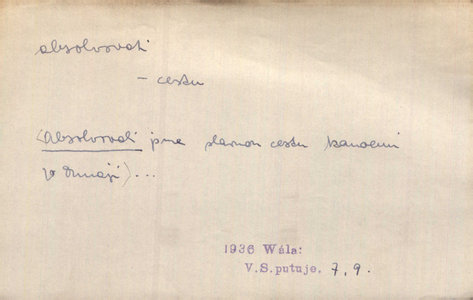 absolvovati
– cestu
(Absolvovali jsme slavnou cestu kanoemi
po Dunaji) ...
1936 Wála:
V.S.putuje. 7, 9.